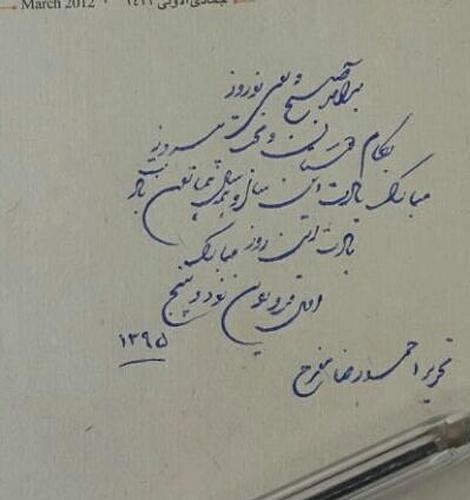 March 2012 · جمادی الاولی ۱۴۳۳
برآمد صبح و بوی نوروز
بکام دوستان و بخت پیروز
مبارک بادت این سال و همه سال
همایون بادت این روز مبارک
اول فروردین نود و پنج
۱۳۹۵
تحریر احمدرضا